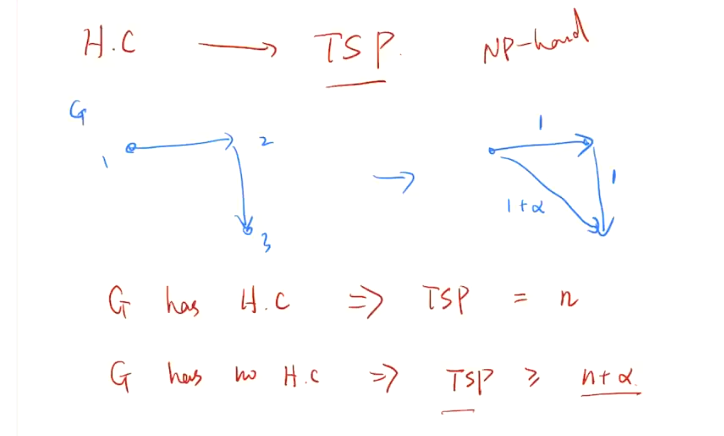 H.C → TSP. NP-hard
G
1 2 → 1
1
1+α
3
G has H.C => TSP = n
G has no H.C => TSP ≥ n+α.